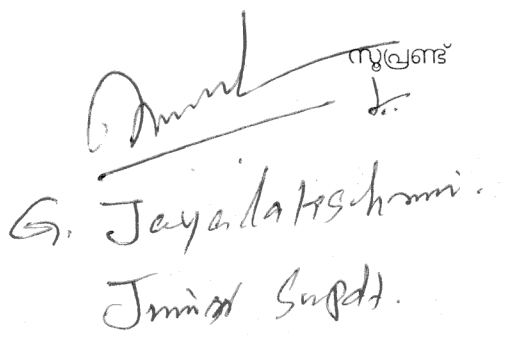 സൂപ്രണ്ട്
G. Jayalakshmi.
Junior Supdt.